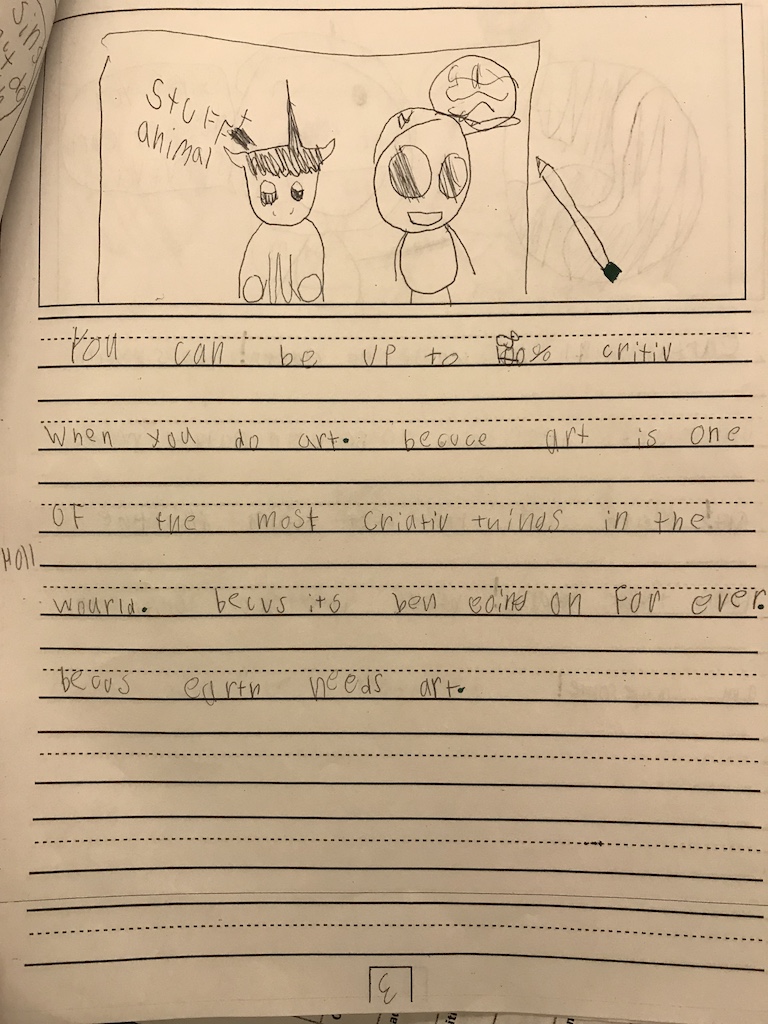 Stufft
animal
You can be up to % critiv
When you do art. becuce art is one
of the most criativ things in the
Holl
wourld. becus its ben going on for ever.
becus earth needs art.
3